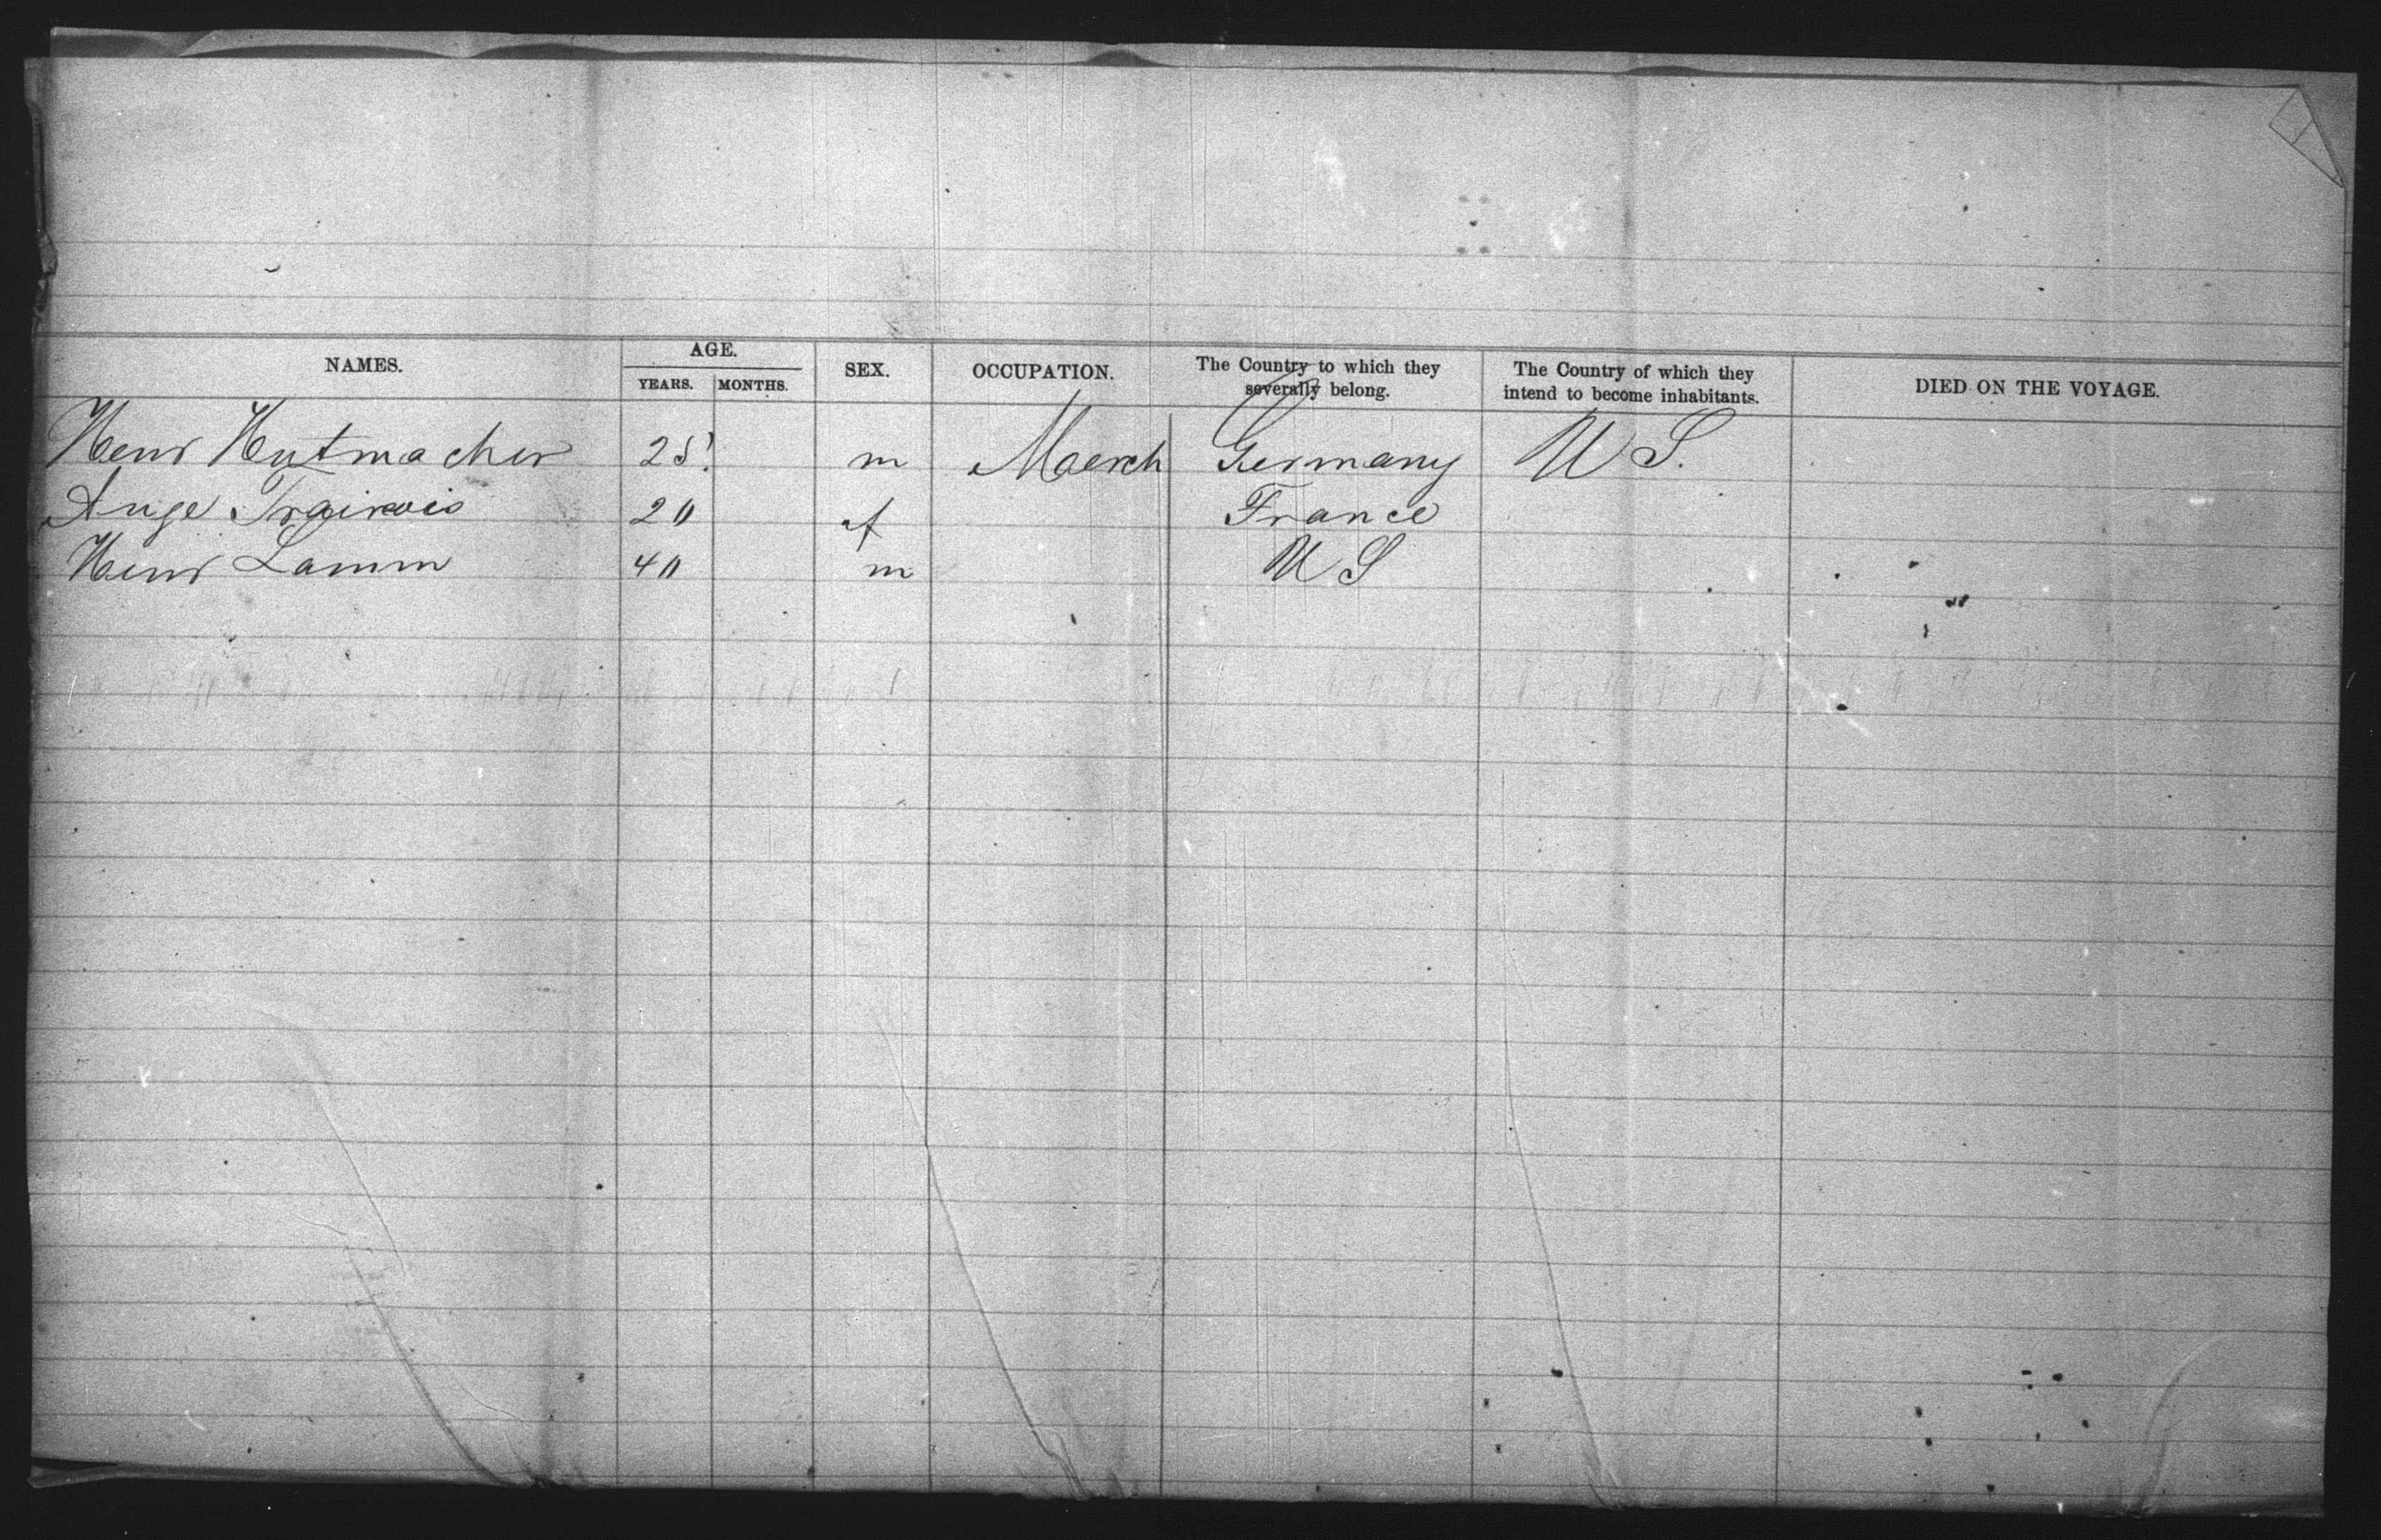 NAMES. AGE. YEARS. MONTHS. SEX. OCCUPATION. The Country to which they severally belong. The Country of which they intend to become inhabitants. DIED ON THE VOYAGE.
Henr Hutmacher 25 m Maerch Germany U S.
Ange 20 f France
Henr Lamm 40 m U S